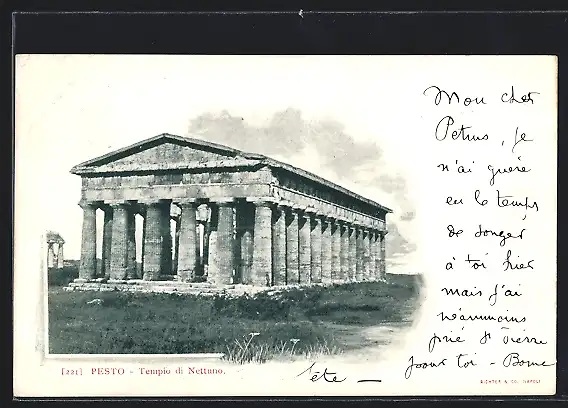 Mon cher
Petrus, je
n'ai guère
eu le temps
de songer
à toi hier
mais j'ai
néanmoins
prié St Pierre
pour toi - Bonne
fête —
[221] PESTO - Tempio di Nettuno.
RICHTER & CO, NAPOLI